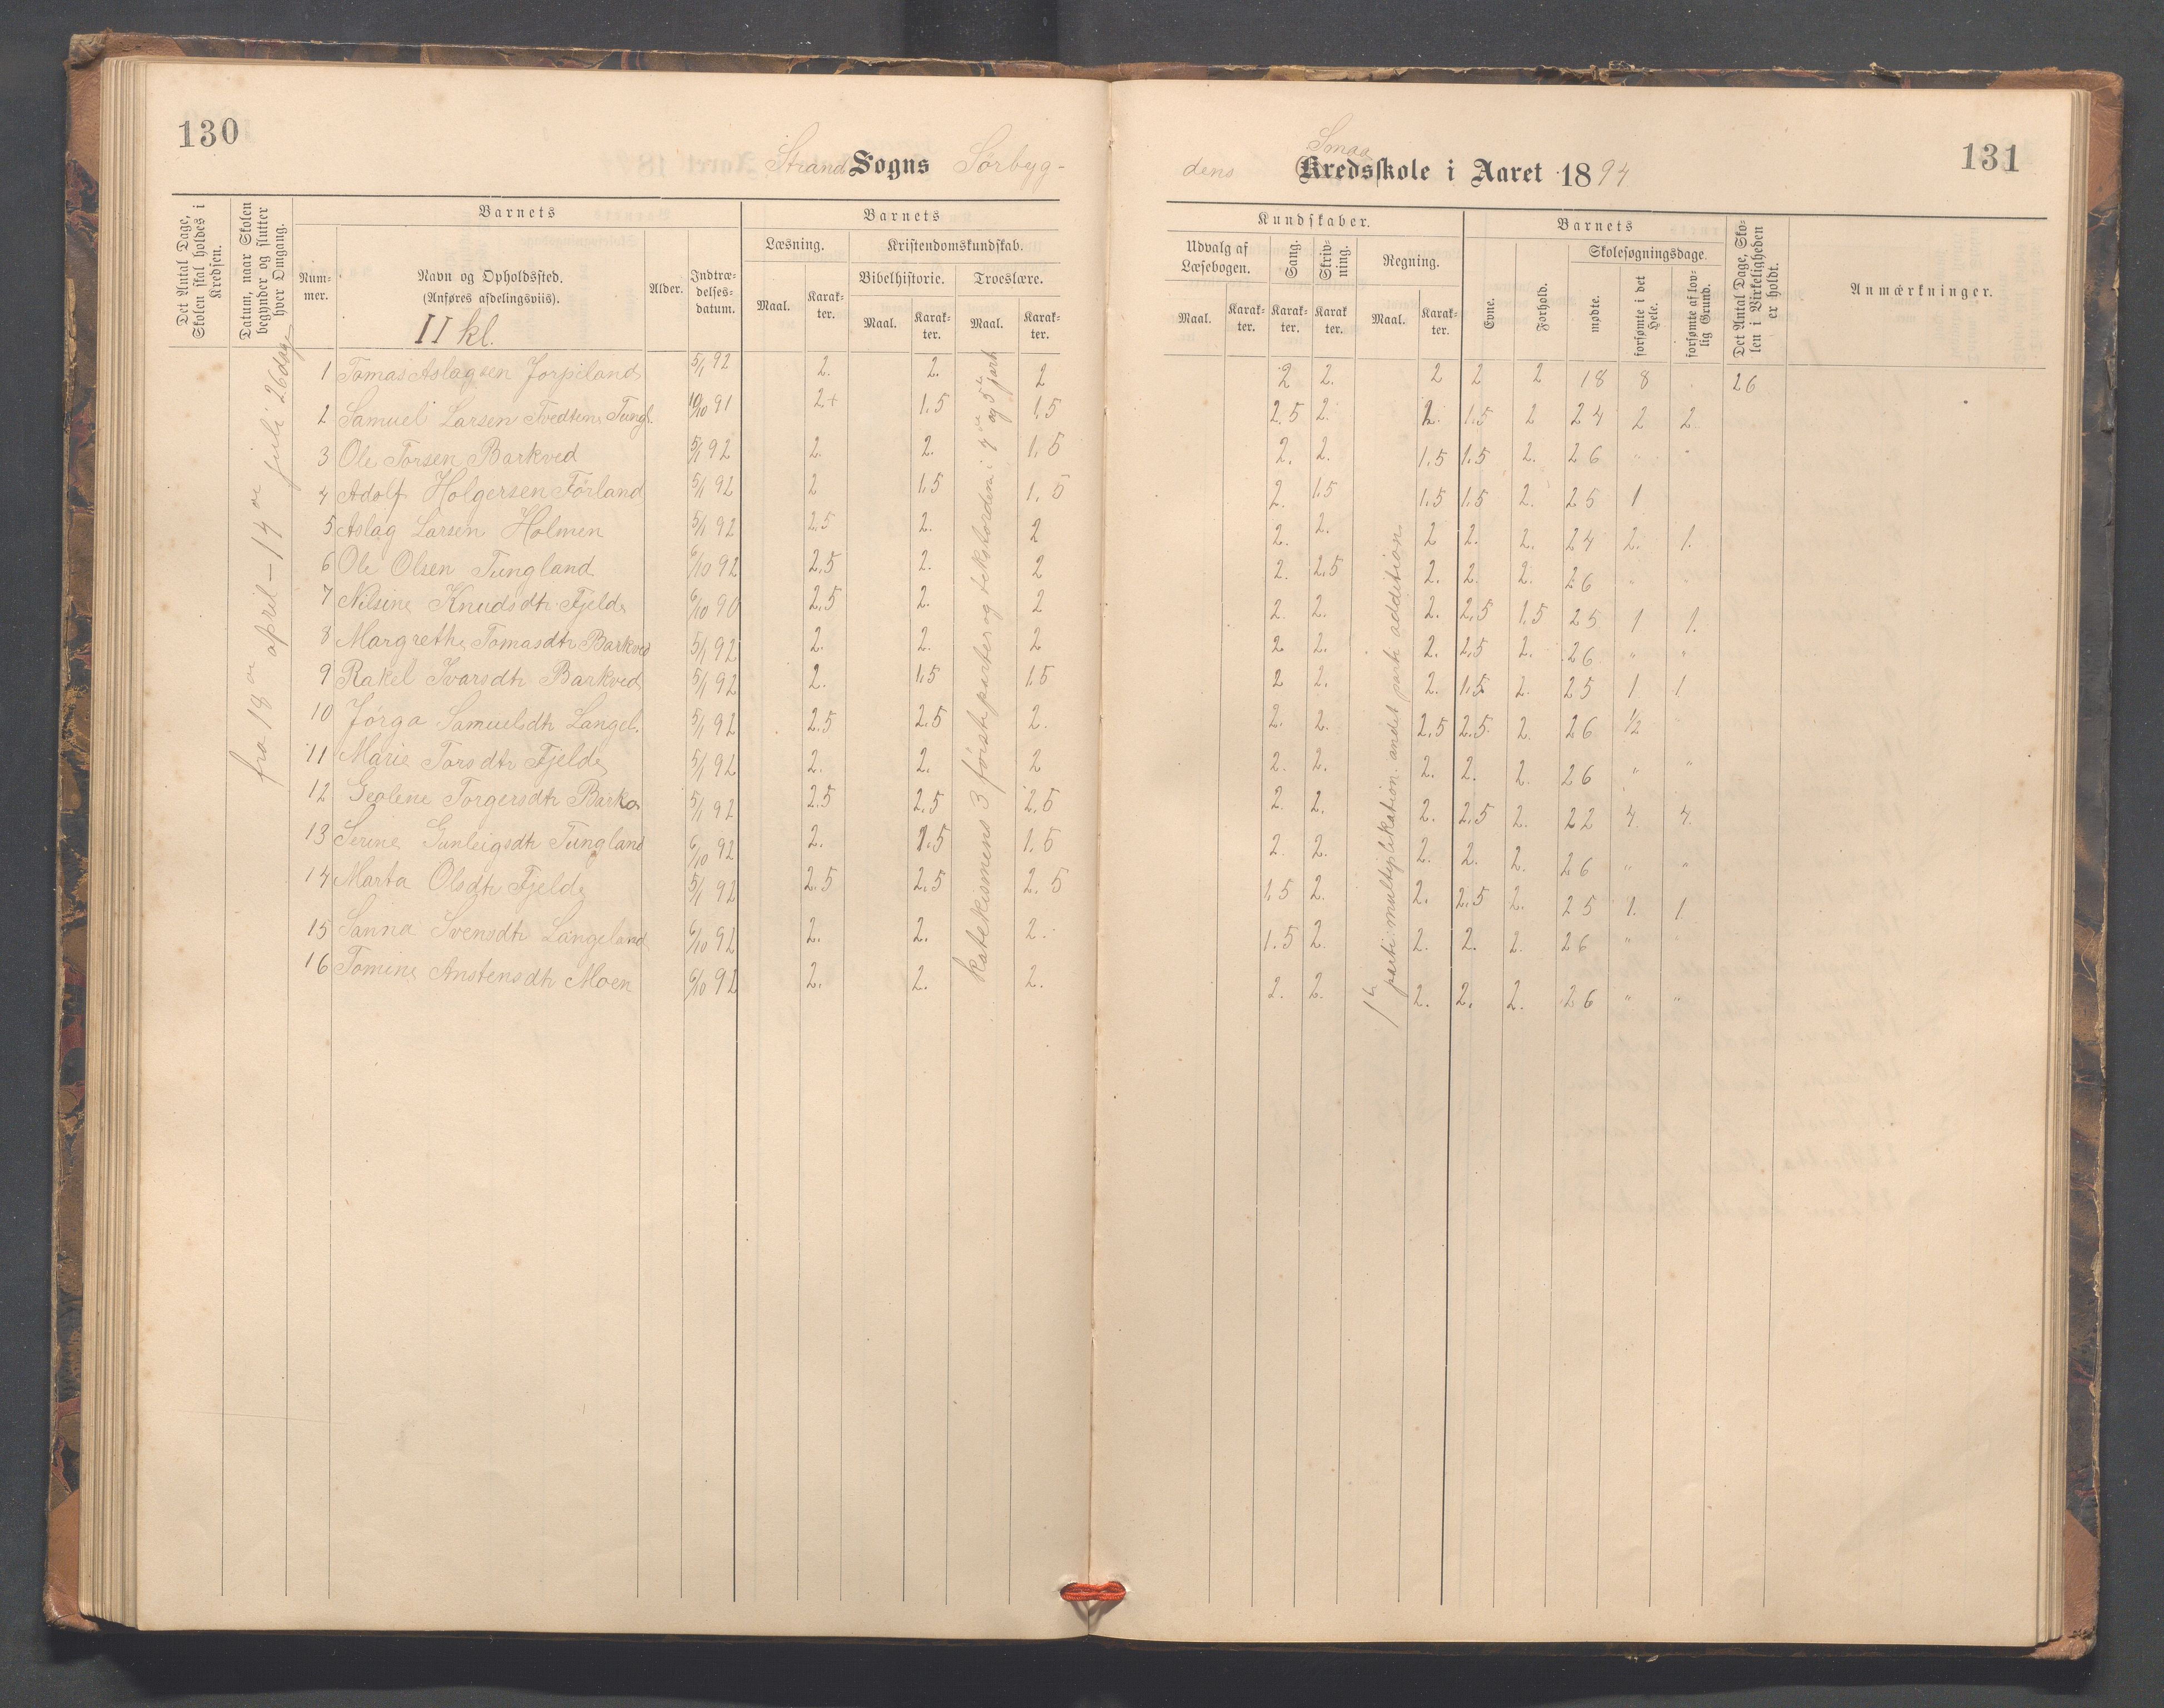 130
Strand Sogns Sörbyg-
dens Smaa Kredsskole i Aaret 1894
131
Det Antal Dage, Skolen skal holdes i Kredsen.
Datum, naar Skolen begynder og slutter hver Omgang.
Barnets
Num-mer.
Navn og Opholdssted.
(Anføres afdelingsviis).
II kl.
Alder.
Indtræ-delses-datum.
Barnets
Læsning.
Maal.
Karak-ter.
Kristendomskundskab.
Bibelhistorie.
Maal.
Karak-ter.
Troeslære.
Maal.
Karak-ter.
Kundskaber.
Udvalg af Læsebogen.
Maal.
Karak-ter.
Sang.
Karak-ter.
Skriv-ning.
Karak ter.
Regning.
Maal.
Karak-ter.
Barnets
Evne.
Forhold.
Skolesøgningsdage.
mødte.
forsømte i det Hele.
forsømte af lov-lig Grund.
Det Antal Dage, Sko-len i Virkeligheden er holdt.
Anmærkninger.
fra 18de april - 14de juli 26 dage
katekismens 3 förste parter og tekstordene i 4de og 5te part
parti: multiplikation. andet parti addition
1 Tomas Aslagsen Jorpiland 5/1 92 2. 2. 2 2 2. 2 2 2 18 8 26
2 Samuel Larsen Tvedten Tungl. 10/10 91 2+ 1.5 1.5 2.5 2. 2. 1.5 2 24 2 2
3 Ole Torsen Barkved 5/1 92 2. 2. 1.5 2. 2. 1.5 1.5 2. 26 " "
4 Adolf Holgersen Förland 5/1 92 2 1.5 1.5 2. 1.5 1.5 1.5 2. 25 1
5 Aslag Larsen Holmen 5/1 92 2.5 2. 2 2. 2. 2 2. 2. 24 2. 1.
6 Ole Olsen Tungland 6/10 92 2.5 2. 2 2. 2.5 2. 2. 2. 26 " "
7 Nilsine Knudsdtr Fjelde 6/10 90 2.5 2. 2 2. 2. 2. 2.5 1.5 25 1 1.
8 Margrethe Tomasdtr Barkved 5/1 92 2. 2. 2 2 2. 2. 2.5 2. 26 " "
9 Rakel Ivarsdtr Barkved 5/1 92 2. 1.5 1.5 2 2. 2. 1.5 2. 25 1 1
10 Jörga Samuelsdtr Langel. 5/1 92 2.5 2.5 2. 2. 2. 2.5 2.5 2. 26 1/2
11 Marie Torsdtr Fjelde 5/1 92 2. 2. 2 2. 2. 2. 2. 2. 26 " "
12 Geoline Torgersdtr Barka 5/1 92 2.5 2.5 2.5 2. 2. 2. 2.5 2. 22 4 4.
13 Serine Gunleigsdtr Tungland 6/10 92 2. 1.5 1.5 2. 2. 2. 2. 2. 26 " "
14 Marta Olsdtr Fjelde 5/1 92 2.5 2.5 2.5 1.5 2. 2. 2.5 2. 25 1. 1
15 Sanna Svensdtr Langeland 6/10 92 2. 2. 2. 1.5 2. 2. 2. 2. 26 " "
16 Tomine Anstensdtr Moen 6/10 92 2. 2. 2. 2. 2. 2. 2. 2. 26 " "